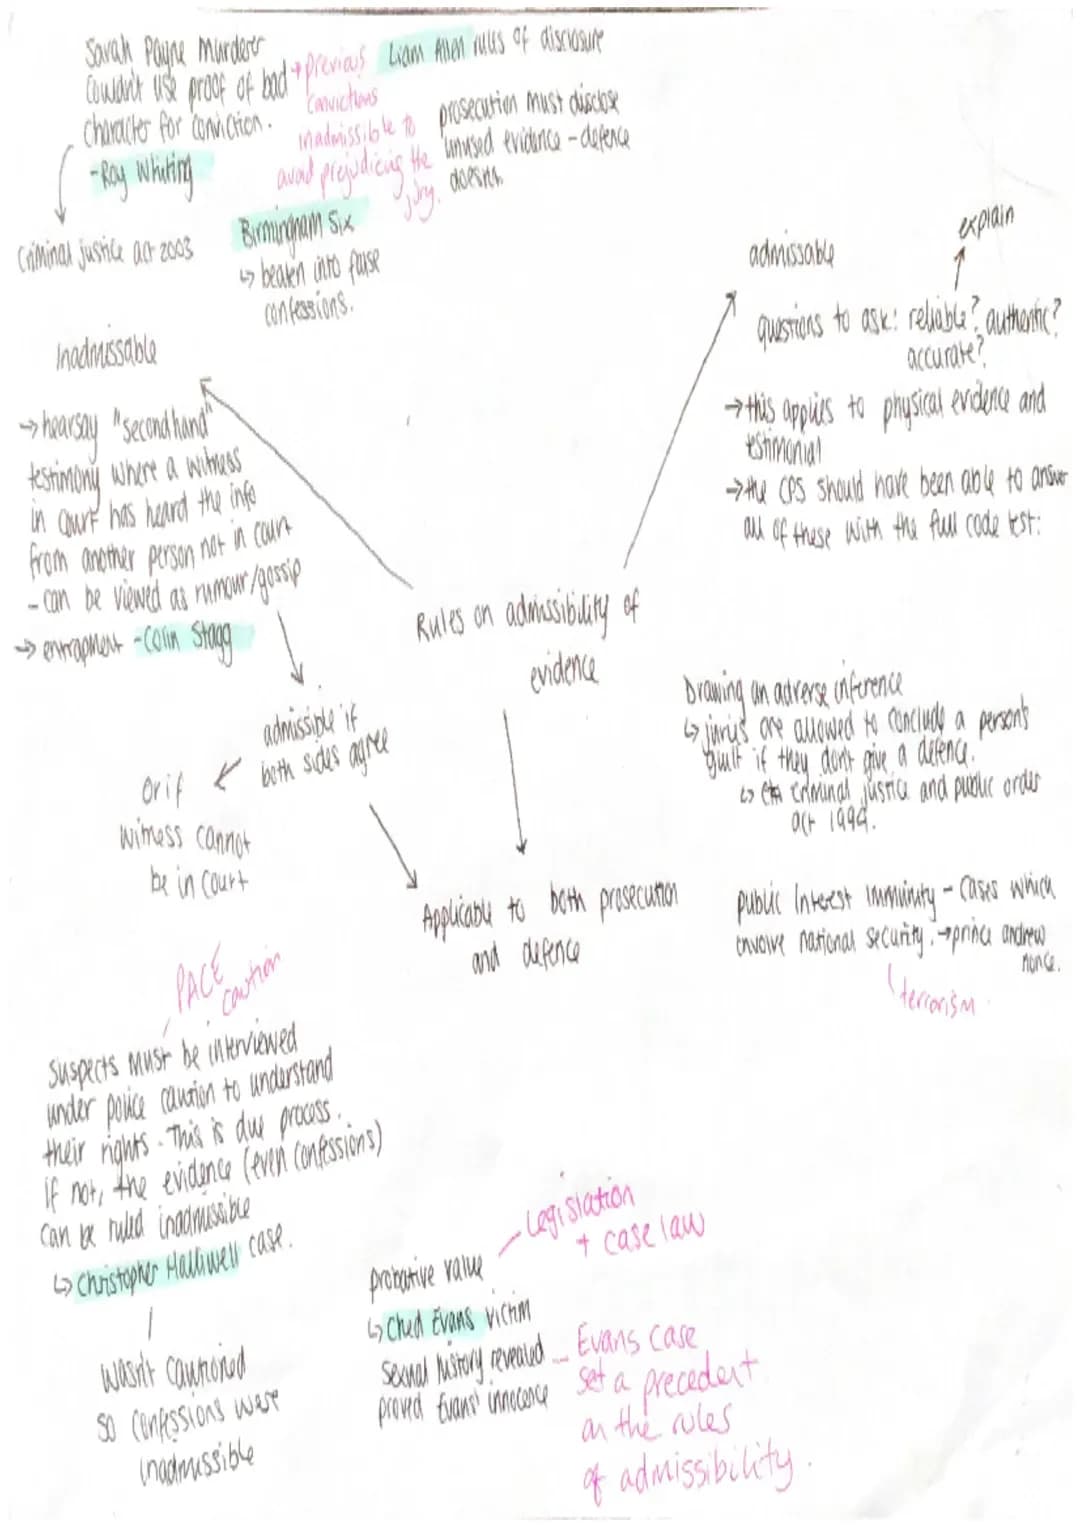 Sarah Payne Murderer
Couldn't use proof of bad
character for conviction.
-Roy Whiting
Criminal justice act 2003
→ previous
convictions
inadmissible to
avoid prejudicing the
jury.
Liam Allen rules of disclosure
prosecution must disclose
unused evidence - defence
doesn't.
Birmingham Six
↳ beaten into false
confessions.
Inadmissable
→ hearsay "second hand"
testimony where a witness
in court has heard the info
from another person not in court
- can be viewed as rumour/gossip
→ entrapment - Colin Stagg
admissible if
both sides agree
Or if
witness cannot
be in court
admissable
explain
questions to ask: reliable? authentic?
accurate?
→ this applies to physical evidence and
testimonial
→ the CPS should have been able to answer
all of these with the full code test:
Rules on admissibility of
evidence
Drawing an adverse inference
↳ juries are allowed to conclude a person's
guilt if they don't give a defence.
↳ criminal justice and public order
act 1994.
Applicable to both prosecution
and defence
public Interest Immunity - Cases which
involve national security. → prince andrew
nonce.
terrorism
PACE
caution
Suspects must be interviewed
under police caution to understand
their rights. This is due process.
if not, the evidence (even confessions)
can be ruled inadmissible
↳ Christopher Halliwell case.
Wasn't cautioned
so confessions were
inadmissible
Legislation
+ case law
probative value
↳ Ched Evans victim
sexual history revealed
proved Evans' innocence
Evans case
set a precedent
on the rules
of admissibility.